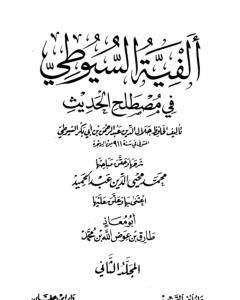 ألفية السيوطي
في مصطلح الحديث
تأليف الحافظ جلال الدين عبد الرحمن بن أبي بكر السيوطي
المتوفى في سنة ٩١١ من الهجرة
شرحها وحقق مباحثها
محمد محيي الدين عبد الحميد
اعتنى بها وعلق عليها
أبو معاذ
طارق بن عوض الله بن محمد
المجلد الثاني